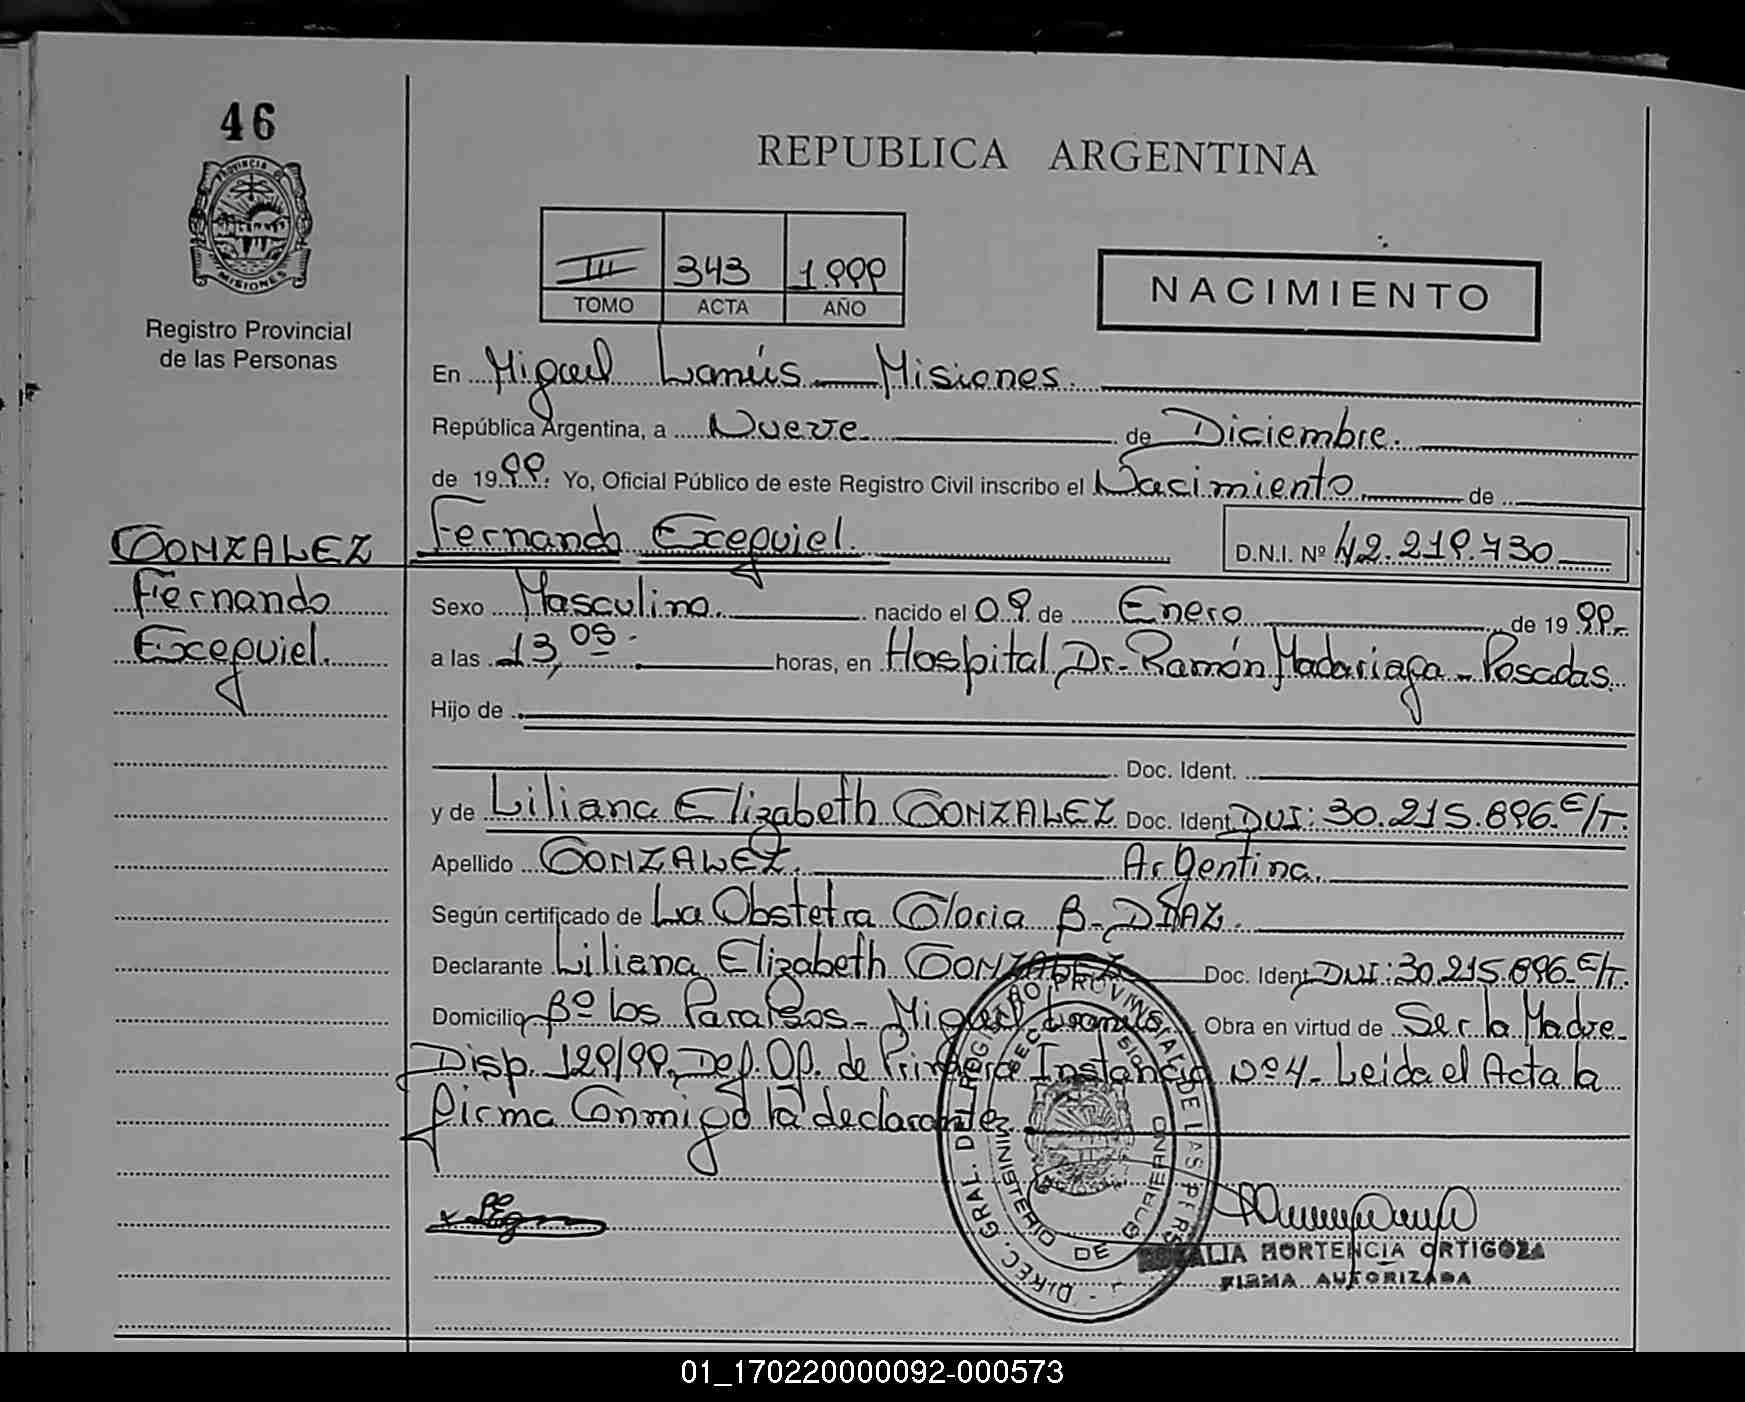 46
PROVINCIA DE
MISIONES
Registro Provincial
de las Personas
GONZALEZ
Fernando
Excequiel.
REPUBLICA ARGENTINA
III 343 1.999
TOMO ACTA AÑO
NACIMIENTO
En Miguel Lanús - Misiones.
República Argentina, a Nueve de Diciembre.
de 1999. Yo, Oficial Público de este Registro Civil inscribo el Nacimiento de
Fernando Excequiel. D.N.I. Nº 42.219.730
Sexo Masculino. nacido el 09 de Enero de 1999.
a las 13,05. horas, en Hospital Dr. Ramón Madariaga - Posadas.
Hijo de
Doc. Ident.
y de Liliana Elizabeth GONZALEZ Doc. Ident. DNI: 30.215.896. E/T.
Apellido GONZALEZ. Argentina.
Según certificado de La Obstetra Gloria B. DIAZ.
Declarante Liliana Elizabeth GONZALEZ Doc. Ident. DNI: 30.215.896. E/T.
Domicilio Bº los Paraísos - Miguel Lanús Obra en virtud de Ser la Madre.
Disp. 129/99. Def. Of. de Primera Instancia Nº 4. Leida el Acta la
firma Conmigo la declarante.
DIREC. GRAL. DEL REGISTRO PROVINCIAL DE LAS PERS
MINISTERIO DE GOBIERNO
HORTENCIA ORTIGOZA
FIRMA AUTORIZADA
01_170220000092-000573